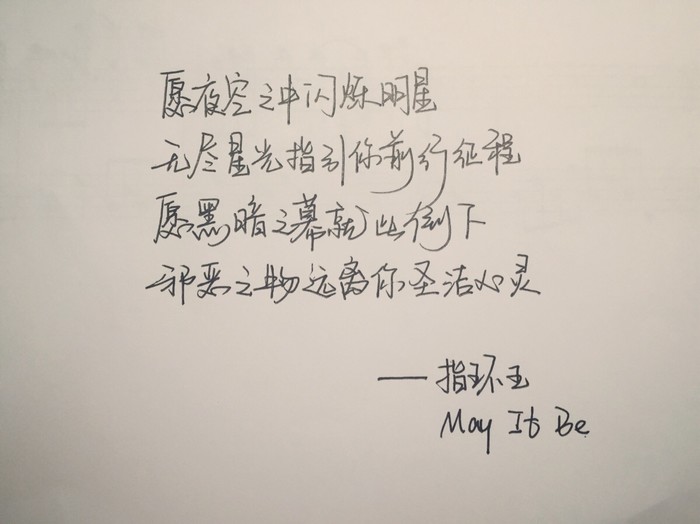 愿夜空之中闪烁明星
无尽星光指引你前行征程
愿黑暗之幕就此倒下
邪恶之物远离你圣洁心灵
——指环王
May It Be